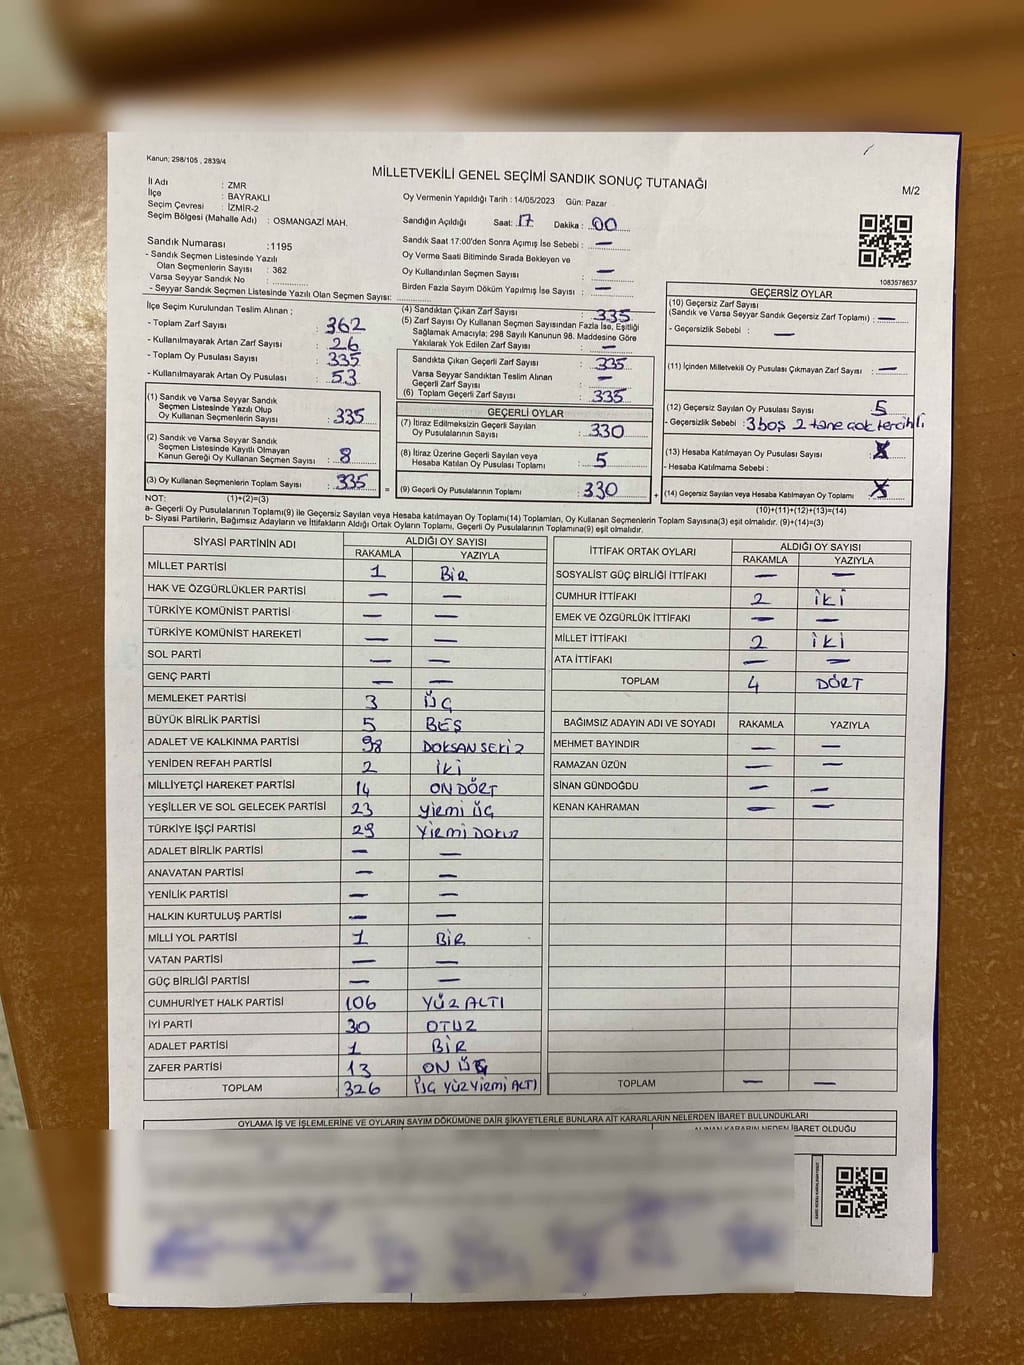 Kanun; 298/105 , 2839/4
MİLLETVEKİLİ GENEL SEÇİMİ SANDIK SONUÇ TUTANAĞI
M/2
İl Adı : ZMR
İlçe : BAYRAKLI
Seçim Çevresi : İZMİR-2
Seçim Bölgesi (Mahalle Adı) : OSMANGAZİ MAH.
Sandık Numarası : 1195
- Sandık Seçmen Listesinde Yazılı
Olan Seçmenlerin Sayısı : 382
Varsa Seyyar Sandık No :
- Seyyar Sandık Seçmen Listesinde Yazılı Olan Seçmen Sayısı:
Oy Vermenin Yapıldığı Tarih : 14/05/2023 Gün: Pazar
Sandığın Açıldığı Saat: 17 Dakika : 00
Sandık Saat 17:00'den Sonra Açımış İse Sebebi : —
Oy Verme Saati Bitiminde Sırada Bekleyen ve
Oy Kullandırılan Seçmen Sayısı : —
Birden Fazla Sayım Döküm Yapılmış İse Sayısı : —
1083578637
İlçe Seçim Kurulundan Teslim Alınan ;
- Toplam Zarf Sayısı : 362
- Kullanılmayarak Artan Zarf Sayısı : 26
- Toplam Oy Pusulası Sayısı : 335
- Kullanılmayarak Artan Oy Pusulası : 53
(1) Sandık ve Varsa Seyyar Sandık
Seçmen Listesinde Yazılı Olup
Oy Kullanan Seçmenlerin Sayısı : 335
(2) Sandık ve Varsa Seyyar Sandık
Seçmen Listesinde Kayıtlı Olmayan
Kanun Gereği Oy Kullanan Seçmen Sayısı : 8
(3) Oy Kullanan Seçmenlerin Toplam Sayısı : 335
=
(4) Sandıktan Çıkan Zarf Sayısı : 335
(5) Zarf Sayısı Oy Kullanan Seçmen Sayısından Fazla İse, Eşitliği
Sağlamak Amacıyla; 298 Sayılı Kanunun 98. Maddesine Göre
Yakılarak Yok Edilen Zarf Sayısı : —
Sandıkta Çıkan Geçerli Zarf Sayısı : 335
Varsa Seyyar Sandıktan Teslim Alınan
Geçerli Zarf Sayısı : —
(6) Toplam Geçerli Zarf Sayısı : 335
GEÇERLİ OYLAR
(7) İtiraz Edilmeksizin Geçerli Sayılan
Oy Pusulalarının Sayısı : 330
(8) İtiraz Üzerine Geçerli Sayılan veya
Hesaba Katılan Oy Pusulası Toplamı : 5
(9) Geçerli Oy Pusulalarının Toplamı : 330
+
GEÇERSİZ OYLAR
(10) Geçersiz Zarf Sayısı
(Sandık ve Varsa Seyyar Sandık Geçersiz Zarf Toplamı) : —
- Geçersizlik Sebebi : —
(11) İçinden Milletvekili Oy Pusulası Çıkmayan Zarf Sayısı : —
(12) Geçersiz Sayılan Oy Pusulası Sayısı : 5
- Geçersizlik Sebebi : 3 boş 2 tane çok tercihli
(13) Hesaba Katılmayan Oy Pusulası Sayısı :
- Hesaba Katılmama Sebebi :
(14) Geçersiz Sayılan veya Hesaba Katılmayan Oy Toplamı :
NOT: (1)+(2)=(3)
(10)+(11)+(12)+(13)=(14)
a- Geçerli Oy Pusulalarının Toplamı(9) ile Geçersiz Sayılan veya Hesaba Katılmayan Oy Toplamı(14) Toplamları, Oy Kullanan Seçmenlerin Toplam Sayısına(3) eşit olmalıdır. (9)+(14)=(3)
b- Siyasi Partilerin, Bağımsız Adayların ve İttifakların Aldığı Ortak Oyların Toplamı, Geçerli Oy Pusulalarının Toplamına(9) eşit olmalıdır.
SİYASİ PARTİNİN ADI ALDIĞI OY SAYISI
RAKAMLA YAZIYLA
MİLLET PARTİSİ 1 BİR
HAK VE ÖZGÜRLÜKLER PARTİSİ — —
TÜRKİYE KOMÜNİST PARTİSİ — —
TÜRKİYE KOMÜNİST HAREKETİ — —
SOL PARTİ — —
GENÇ PARTİ — —
MEMLEKET PARTİSİ 3 ÜÇ
BÜYÜK BİRLİK PARTİSİ 5 BEŞ
ADALET VE KALKINMA PARTİSİ 98 DOKSAN SEKİZ
YENİDEN REFAH PARTİSİ 2 İKİ
MİLLİYETÇİ HAREKET PARTİSİ 14 ON DÖRT
YEŞİLLER VE SOL GELECEK PARTİSİ 23 YİRMİ ÜÇ
TÜRKİYE İŞÇİ PARTİSİ 29 YİRMİ DOKUZ
ADALET BİRLİK PARTİSİ — —
ANAVATAN PARTİSİ — —
YENİLİK PARTİSİ — —
HALKIN KURTULUŞ PARTİSİ — —
MİLLİ YOL PARTİSİ 1 BİR
VATAN PARTİSİ — —
GÜÇ BİRLİĞİ PARTİSİ — —
CUMHURİYET HALK PARTİSİ 106 YÜZ ALTI
İYİ PARTİ 30 OTUZ
ADALET PARTİSİ 1 BİR
ZAFER PARTİSİ 13 ON ÜÇ
TOPLAM 326 ÜÇ YÜZ YİRMİ ALTI
İTTİFAK ORTAK OYLARI ALDIĞI OY SAYISI
RAKAMLA YAZIYLA
SOSYALİST GÜÇ BİRLİĞİ İTTİFAKI — —
CUMHUR İTTİFAKI 2 İKİ
EMEK VE ÖZGÜRLÜK İTTİFAKI — —
MİLLET İTTİFAKI 2 İKİ
ATA İTTİFAKI — —
TOPLAM 4 DÖRT
BAĞIMSIZ ADAYIN ADI VE SOYADI RAKAMLA YAZIYLA
MEHMET BAYINDIR — —
RAMAZAN ÜZÜN — —
SİNAN GÜNDOĞDU — —
KENAN KAHRAMAN — —
TOPLAM — —
OYLAMA İŞ VE İŞLEMLERİNE VE OYLARIN SAYIM DÖKÜMÜNE DAİR ŞİKAYETLERLE BUNLARA AİT KARARLARIN NELERDEN İBARET BULUNDUKLARI
ALINAN KARARIN NEDEN İBARET OLDUĞU